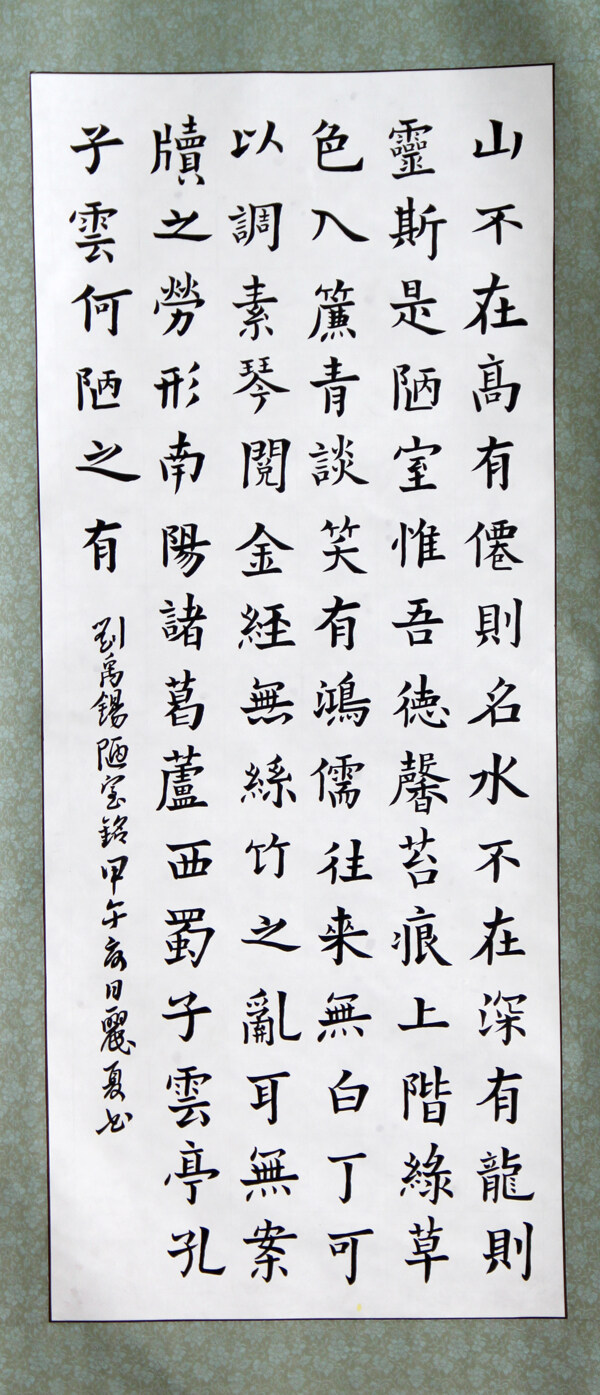 山不在高有僊則名水不在深有龍則
靈斯是陋室惟吾德馨苔痕上階綠草
色入簾青談笑有鴻儒往來無白丁可
以調素琴閱金經無絲竹之亂耳無案
牘之勞形南陽諸葛蘆西蜀子雲亭孔
子雲何陋之有
劉禹錫陋室銘甲午日麗夏書